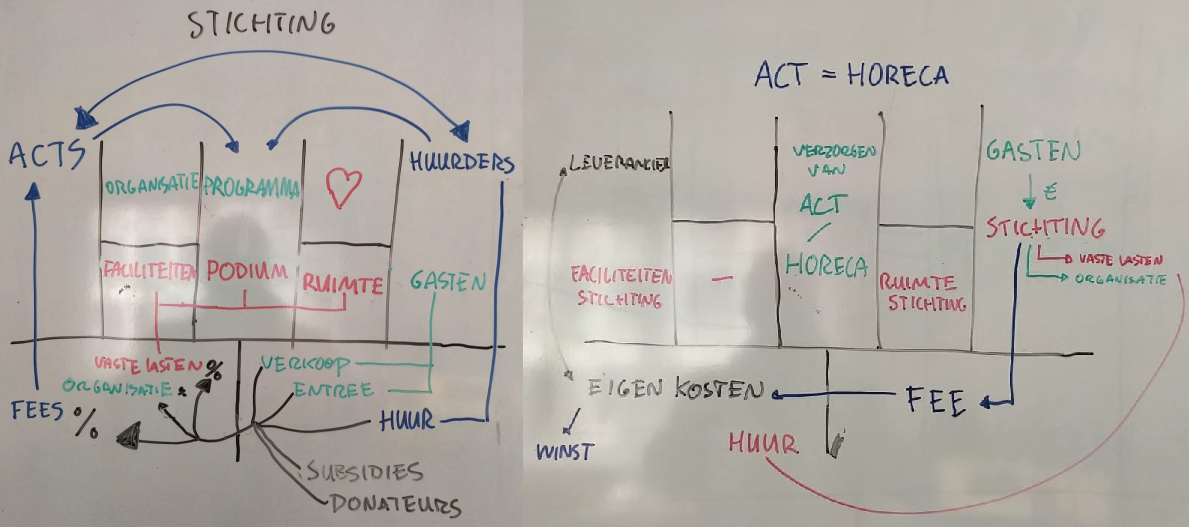 STICHTING
ACTS
HUURDERS
ORGANISATIE
PROGRAMMA
FACILITEITEN
PODIUM
RUIMTE
GASTEN
VASTE LASTEN %
VERKOOP
ORGANISATIE
ENTREE
FEES %
HUUR
SUBSIDIES
DONATEURS
ACT = HORECA
LEVERANCIER
VERZORGEN
VAN
ACT
/
HORECA
GASTEN
€
STICHTING
VASTE LASTEN
ORGANISATIE
FACILITEITEN
STICHTING
-
RUIMTE
STICHTING
EIGEN KOSTEN
FEE
WINST
HUUR